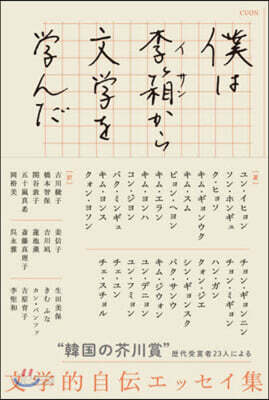 CUON
僕は
李箱から
イサン
文学を
学んだ
【著】
ユン・イヒョン
ソン・ホンギュ
ク・ヒョソ
キム・ギョンウク
キム・スム
ピョン・ヘヨン
キム・エラン
キム・ヨンハ
コン・ジヨン
パク・ミンギュ
キム・ヨンス
クォン・ヨソン
チョン・ギョンニン
チョン・ミギョン
ハン・ガン
クォン・ジエ
シン・ギョンスク
パク・サンウ
キム・ジウォン
ユン・デニョン
ユン・フミョン
チェ・ユン
チェ・スチョル
【訳】
古川綾子
橋本智保
五十嵐真希
岡裕美
姜信子
蓮池薫
斎藤真理子
呉永雅
生田美保
きむ ふな
カン・バンファ
吉原育子
李聖和
“韓国の芥川賞”歴代受賞者23人による
文学的自伝エッセイ集